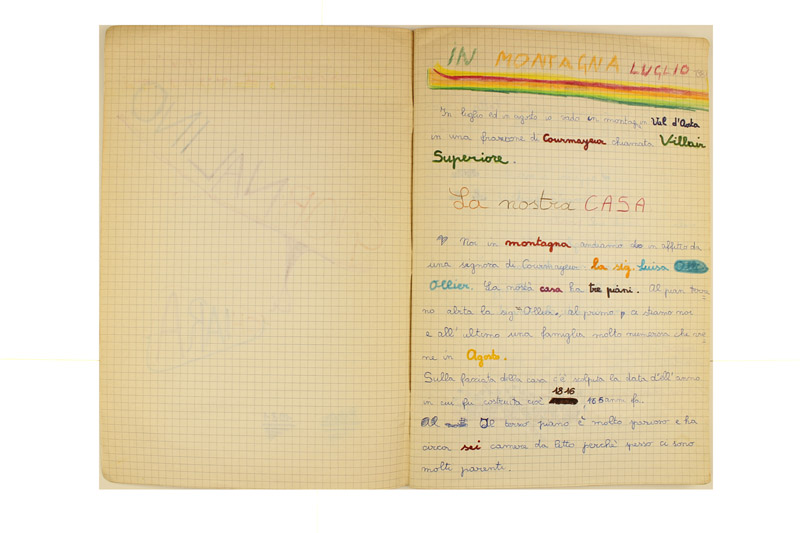 IN MONTAGNA LUGLIO
In luglio ed in agosto io vado in montagna in Val d'Aosta
in una frazione di Courmayeur chiamata Villair
Superiore.
La nostra CASA
Noi in montagna andiamo in affitto da
una signora di Courmayeur: la sig. Luisa
Ollier. La nostra casa ha tre piani. Al pian terre
no abita la sig.ra Ollier, al primo p ci stiamo noi
e all'ultimo una famiglia molto numerosa che vie
ne in Agosto.
Sulla facciata della casa c'è scolpita la data dell'anno
in cui fu costruita cioè 1816, 165 anni fa.
Il terzo piano è molto spazioso e ha
circa sei camere da letto perchè spesso ci sono
molti parenti.